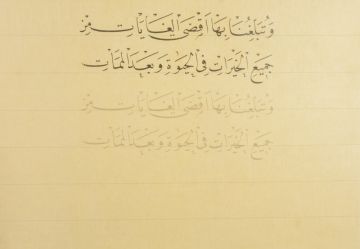 وَتُبَلِّغُنَا بِهَا أَقْصَى الْغَايَاتِ مِنْ
جَمِيعِ الْخَيْرَاتِ فِي الْحَيٰوةِ وَبَعْدَ الْمَمَاتِ
وَتُبَلِّغُنَا بِهَا أَقْصَى الْغَايَاتِ مِنْ
جَمِيعِ الْخَيْرَاتِ فِي الْحَيٰوةِ وَبَعْدَ الْمَمَاتِ